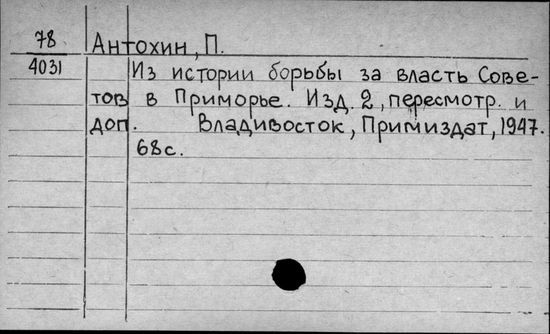 78 Антохин, П.
4031 Из истории борьбы за власть Сове-
тов в Приморье. Изд. 2, пересмотр. и
доп. Владивосток, Примиздат, 1947.
68с.